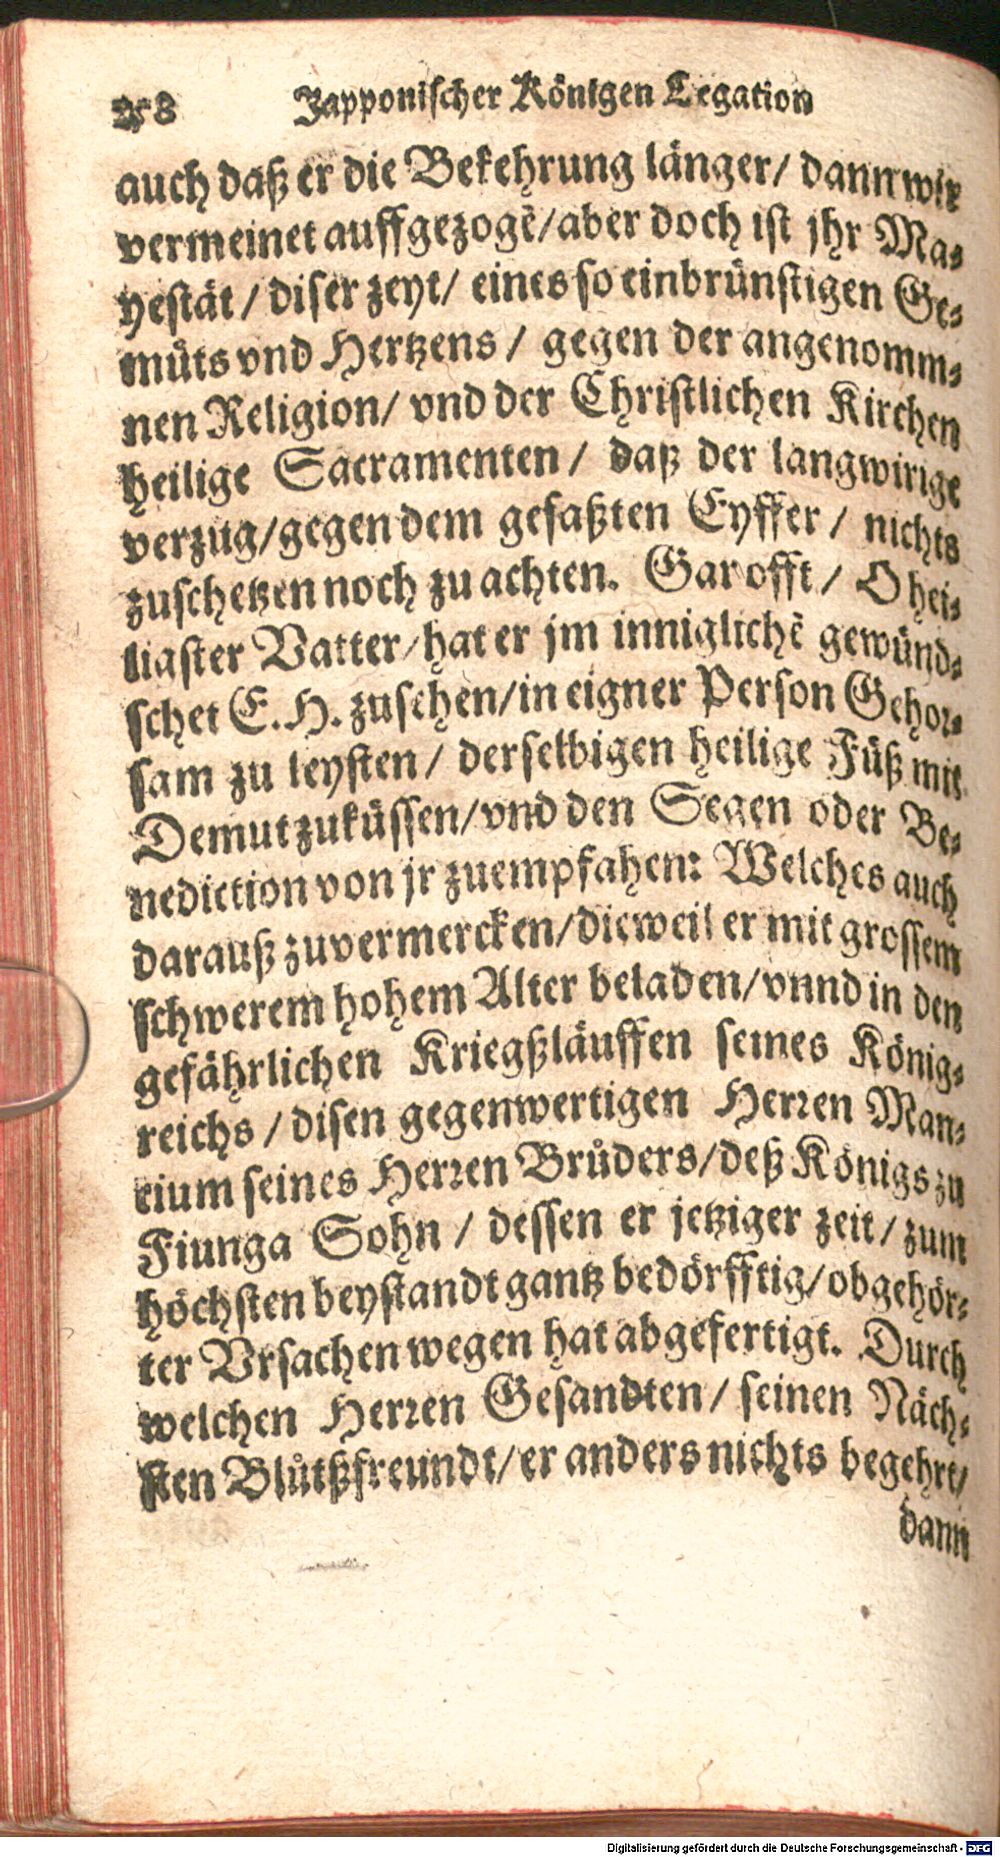 28 Japponischer Königen Legation
auch daß er die Bekehrung länger/ dann wir
vermeinet auffgezogẽ/ aber doch ist jhr Ma-
yestät / diser zeyt/ eines so einbrünstigen Ge-
müts vnd Hertzens / gegen der angenomm-
nen Religion/ vnd der Christlichen Kirchen
heilige Sacramenten / daß der langwirige
verzug/gegen dem gefaßten Eyffer / nichts
zuschetzen noch zu achten. Gar offt / O hei-
ligster Vatter/ hat er jm inniglichẽ gewünd-
schet E. H. zusehen/in eigner Person Gehor-
sam zu leysten / derselbigen heilige Füß mit
Demut zuküssen/vnd den Segen oder Be-
nediction von jr zuempfahen: Welches auch
darauß zuvermercken/dieweil er mit grossem
schwerem hohem Alter beladen/vnnd in den
gefährlichen Kriegßläuffen seines König-
reichs / disen gegenwertigen Herren Man-
cium seines Herren Brůders/deß Königs zu
Fiunga Sohn / dessen er jetziger zeit / zum
höchsten beystandt gantz bedörfftig/obgehör-
ter Vrsachen wegen hat abgefertigt. Durch
welchen Herren Gesandten / seinen Näch-
sten Blůtßfreundt/er anders nichts begehrt/
dann
Digitalisierung gefördert durch die Deutsche Forschungsgemeinschaft - DFG